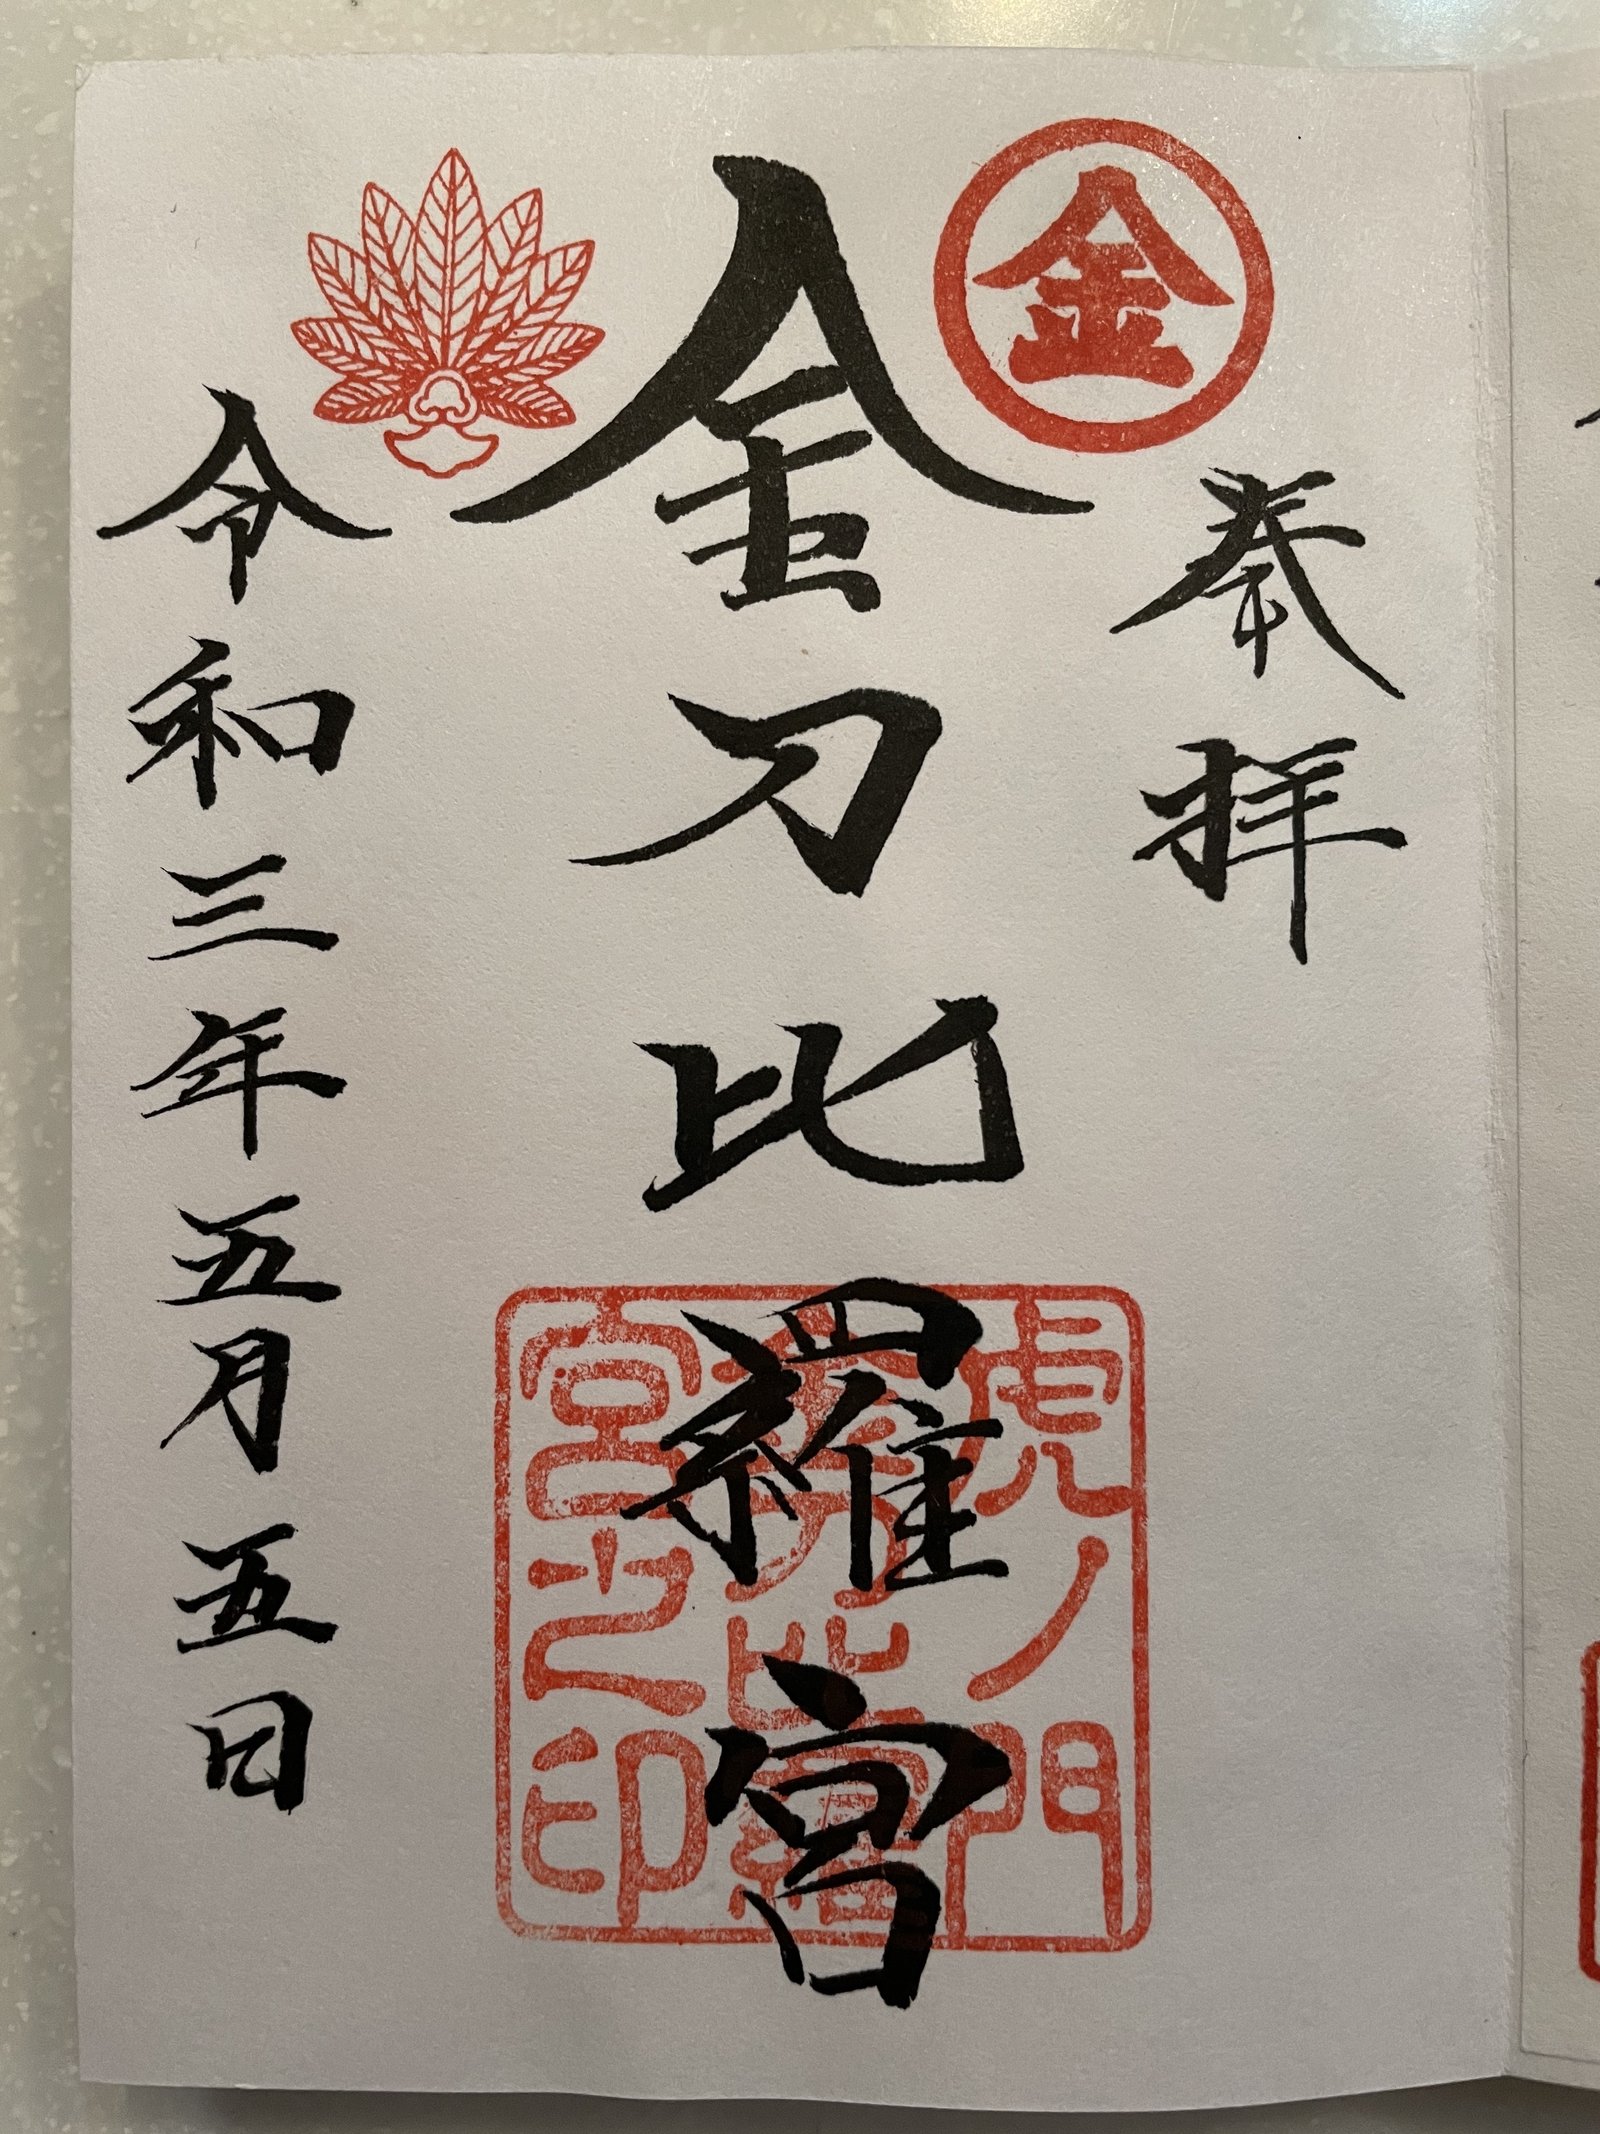 金
奉拝
金刀比羅宮
虎ノ門
金刀比羅
宮之印
令和三年五月五日